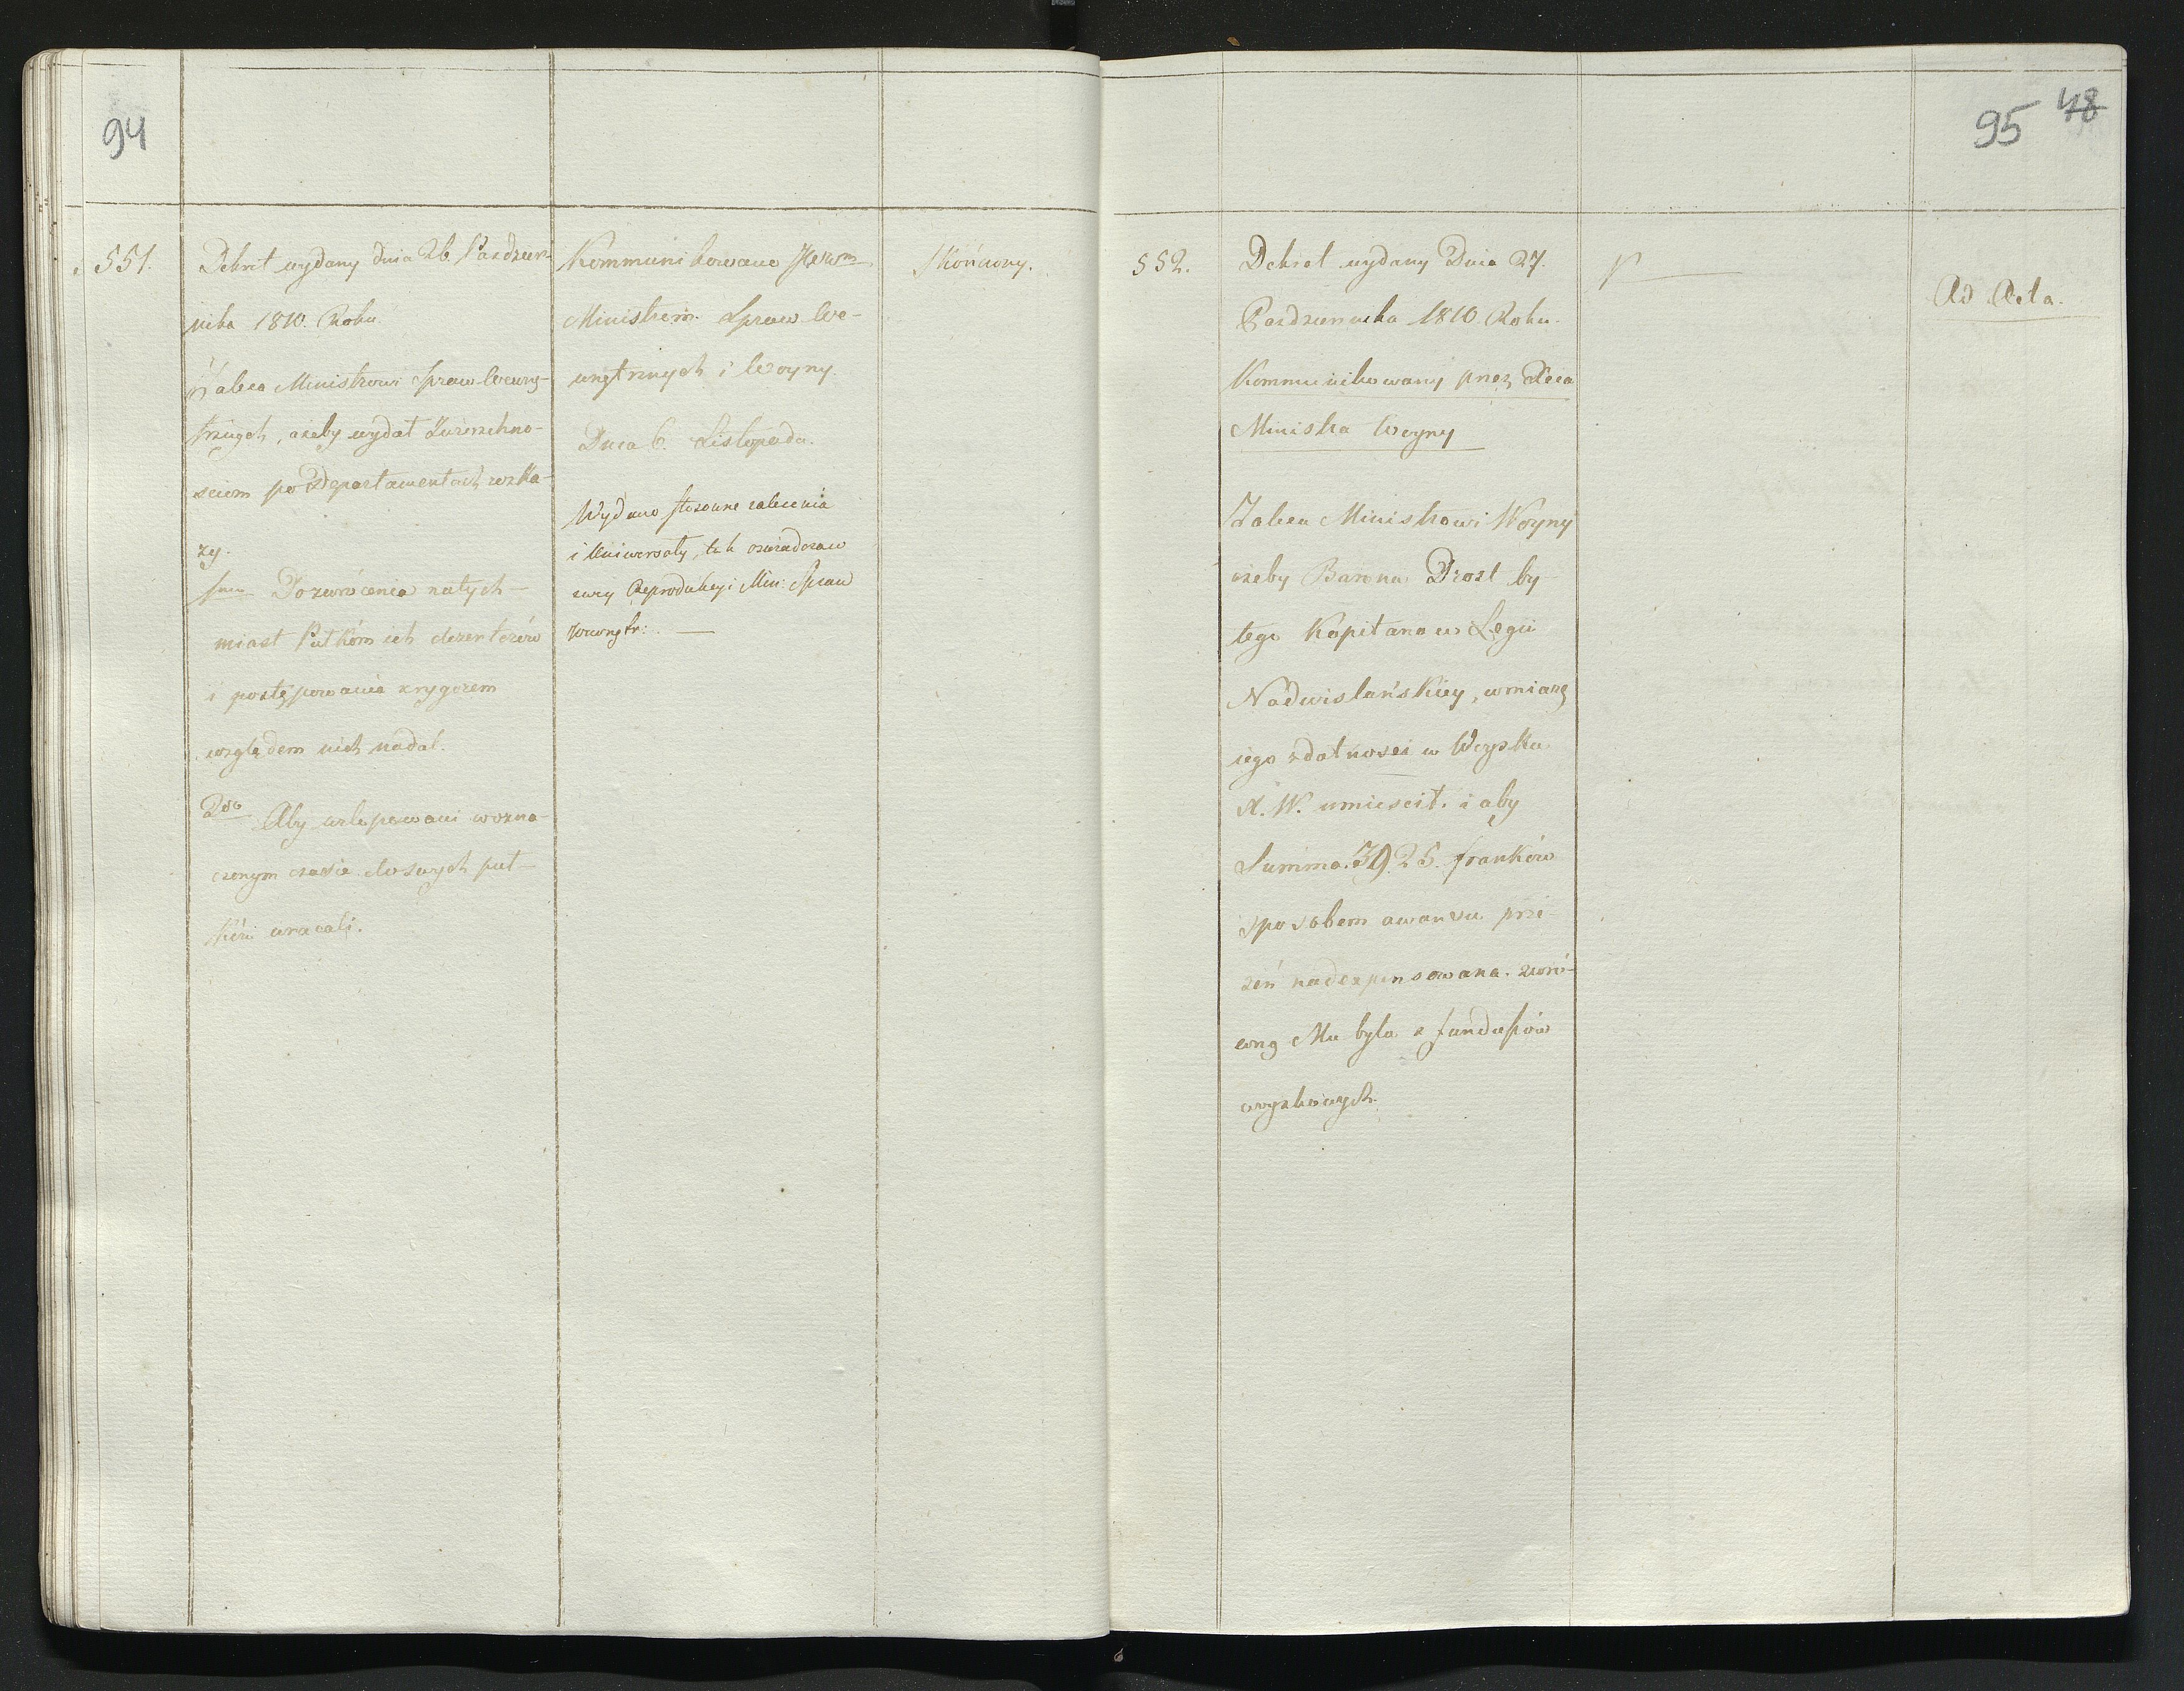 94
551.
Dekret wydany dnia 26 Pazdzier-
nika 1810. Roku.
Zaleca Ministrowi Spraw Wewnę-
trznych, ażeby wydał Zwierzchno-
sciom po Departamentach rozka-
zy.
1mo Do zwrócenia natych-
miast Pułkóm ich dezerterów
i postępowania z rygorem
względem nich nadal.
2do Aby urlopowani w ozna-
czonym czasie do swych puł-
ków wracali.
Kommunikowano
Ministrom Spraw We-
wnętrznych i Woyny.
Dnia 6. Listopada.
Wydano stosowne zalecenia
i Uniwersały, tak oświadczaw
szy Reprodukcyi Min: Spraw
Wewnętr:
Skończony.
95 48
552.
Dekret wydany Dnia 27.
Pazdziernika 1810. Roku.
Kommunikowany przez
Ministra Woyny
Zaleca Ministrowi Woyny
ażeby Barona Drost by-
łego Kapitana w Legii
Nadwislańskiey, w miarę
iego zdatności w Woysku
X. W. umieścił. i aby
Summa 3925. franków
sposobem awansu prze-
zeń nadexpensowana. zwró-
coną Mu była z funduszów
woyskowych.
Ad Acta.